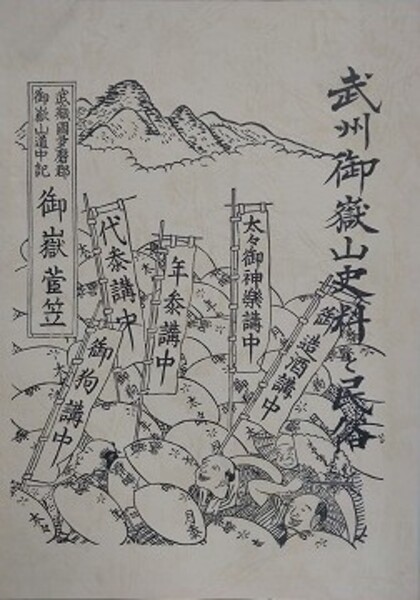 武州御嶽山史料と民俗
武蔵國多磨郡
御嶽山道中記
御嶽菅笠
代参講中
年参講中
太々御神樂講中
御造酒講中
御狗講中
月参
太々